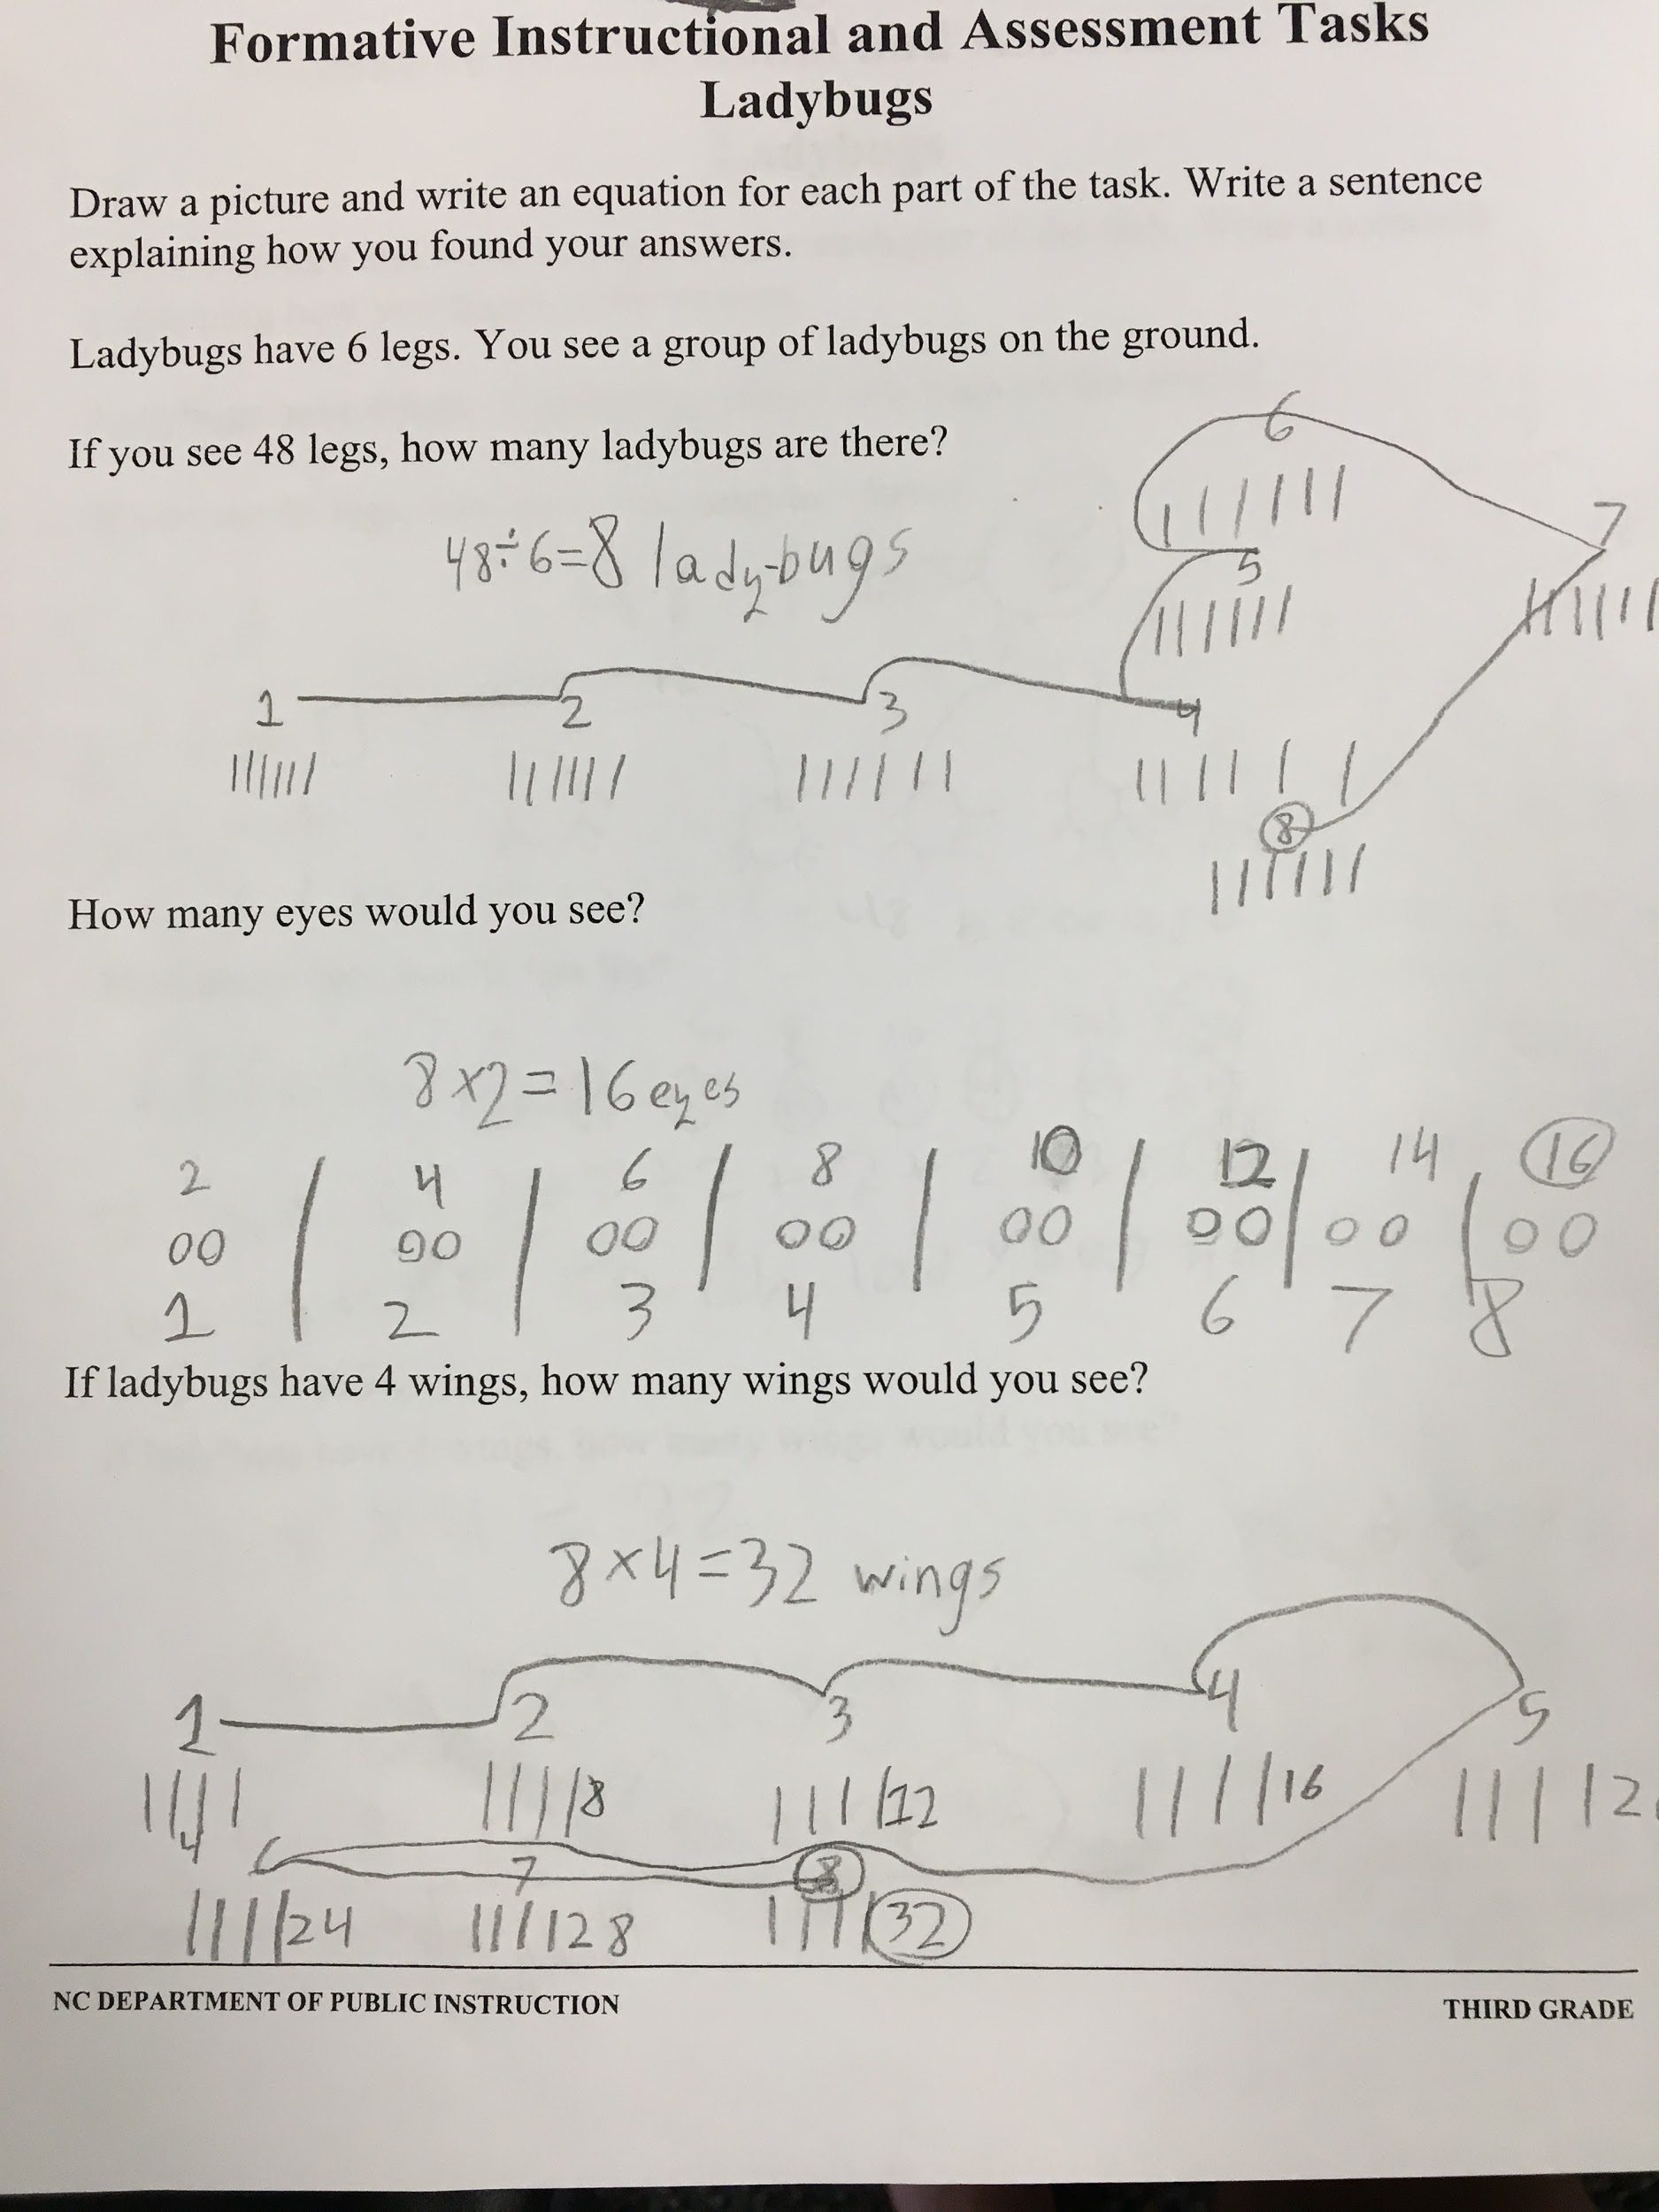 Formative Instructional and Assessment Tasks
Ladybugs
Draw a picture and write an equation for each part of the task. Write a sentence
explaining how you found your answers.
Ladybugs have 6 legs. You see a group of ladybugs on the ground.
If you see 48 legs, how many ladybugs are there?
48÷6=8 lady-bugs
6
7
5
1 2 3 4
8
How many eyes would you see?
8×2=16 eyes
2 4 6 8 10 12 14 16
00 00 00 00 00 00 00 00
1 2 3 4 5 6 7 8
If ladybugs have 4 wings, how many wings would you see?
8×4=32 wings
1 2 3 4 5
4 8 12 16
6 7 8
24 28 32
NC DEPARTMENT OF PUBLIC INSTRUCTION THIRD GRADE